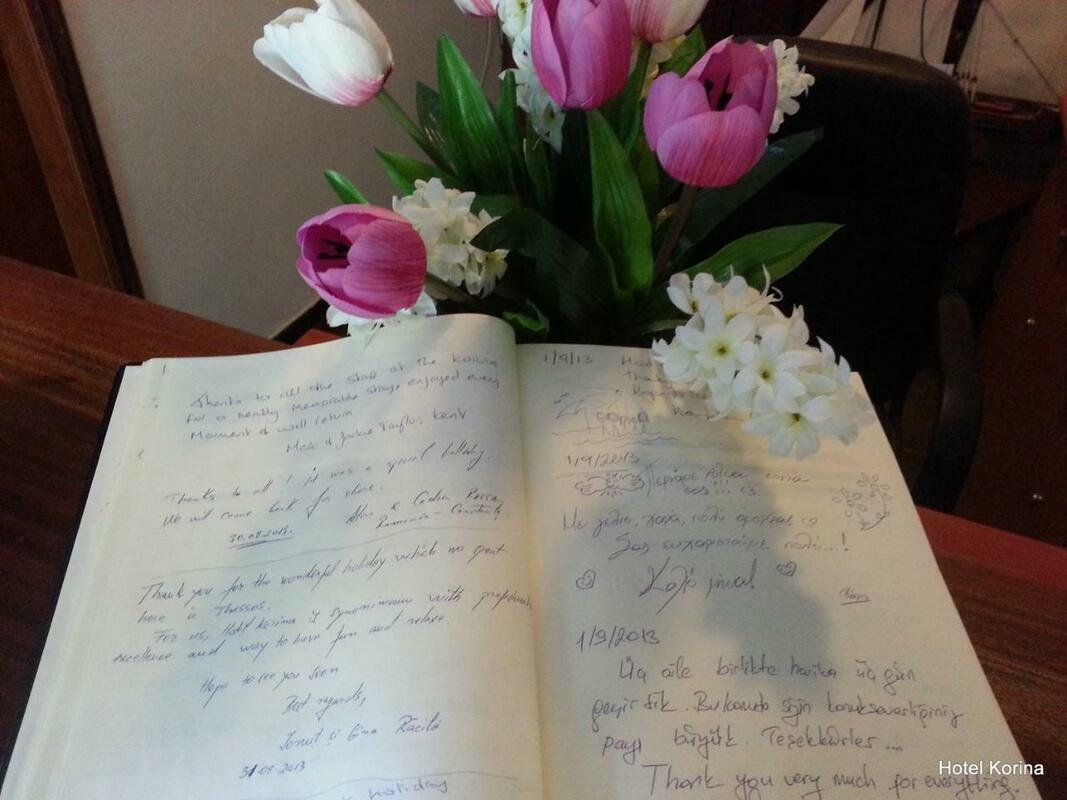 Thanks to all the staff at the Korina
for a really memorable stay, enjoyed every
Moment & will return
& Jackie Taylor, Kent
Thanks to all! it was a special holiday.
We will come back for shore.
Alin & Codrin
Romania - Constanta
30.08.2013.
Thank you for the wonderful holiday which we spent
here in Thassos.
For us, Hotel Korina is synonimous with
excellence and way to have fun and relaxe.
Hope to see you soon
Best regards,
Ionut și
31-08-2013
holiday
1/9/13
1/9/2013
σας!!! <3
Με γέλιο, χαρά, πολύ
Σας ευχαριστούμε πολύ...!
Καλό μήνα!
1/9/2013
Üç aile birlikte harika üç gün
geçirdik. Bu konuda sizin konukseverliğiniz
payı büyük. Teşekkürler ...
Thank you very much for everything.
Hotel Korina